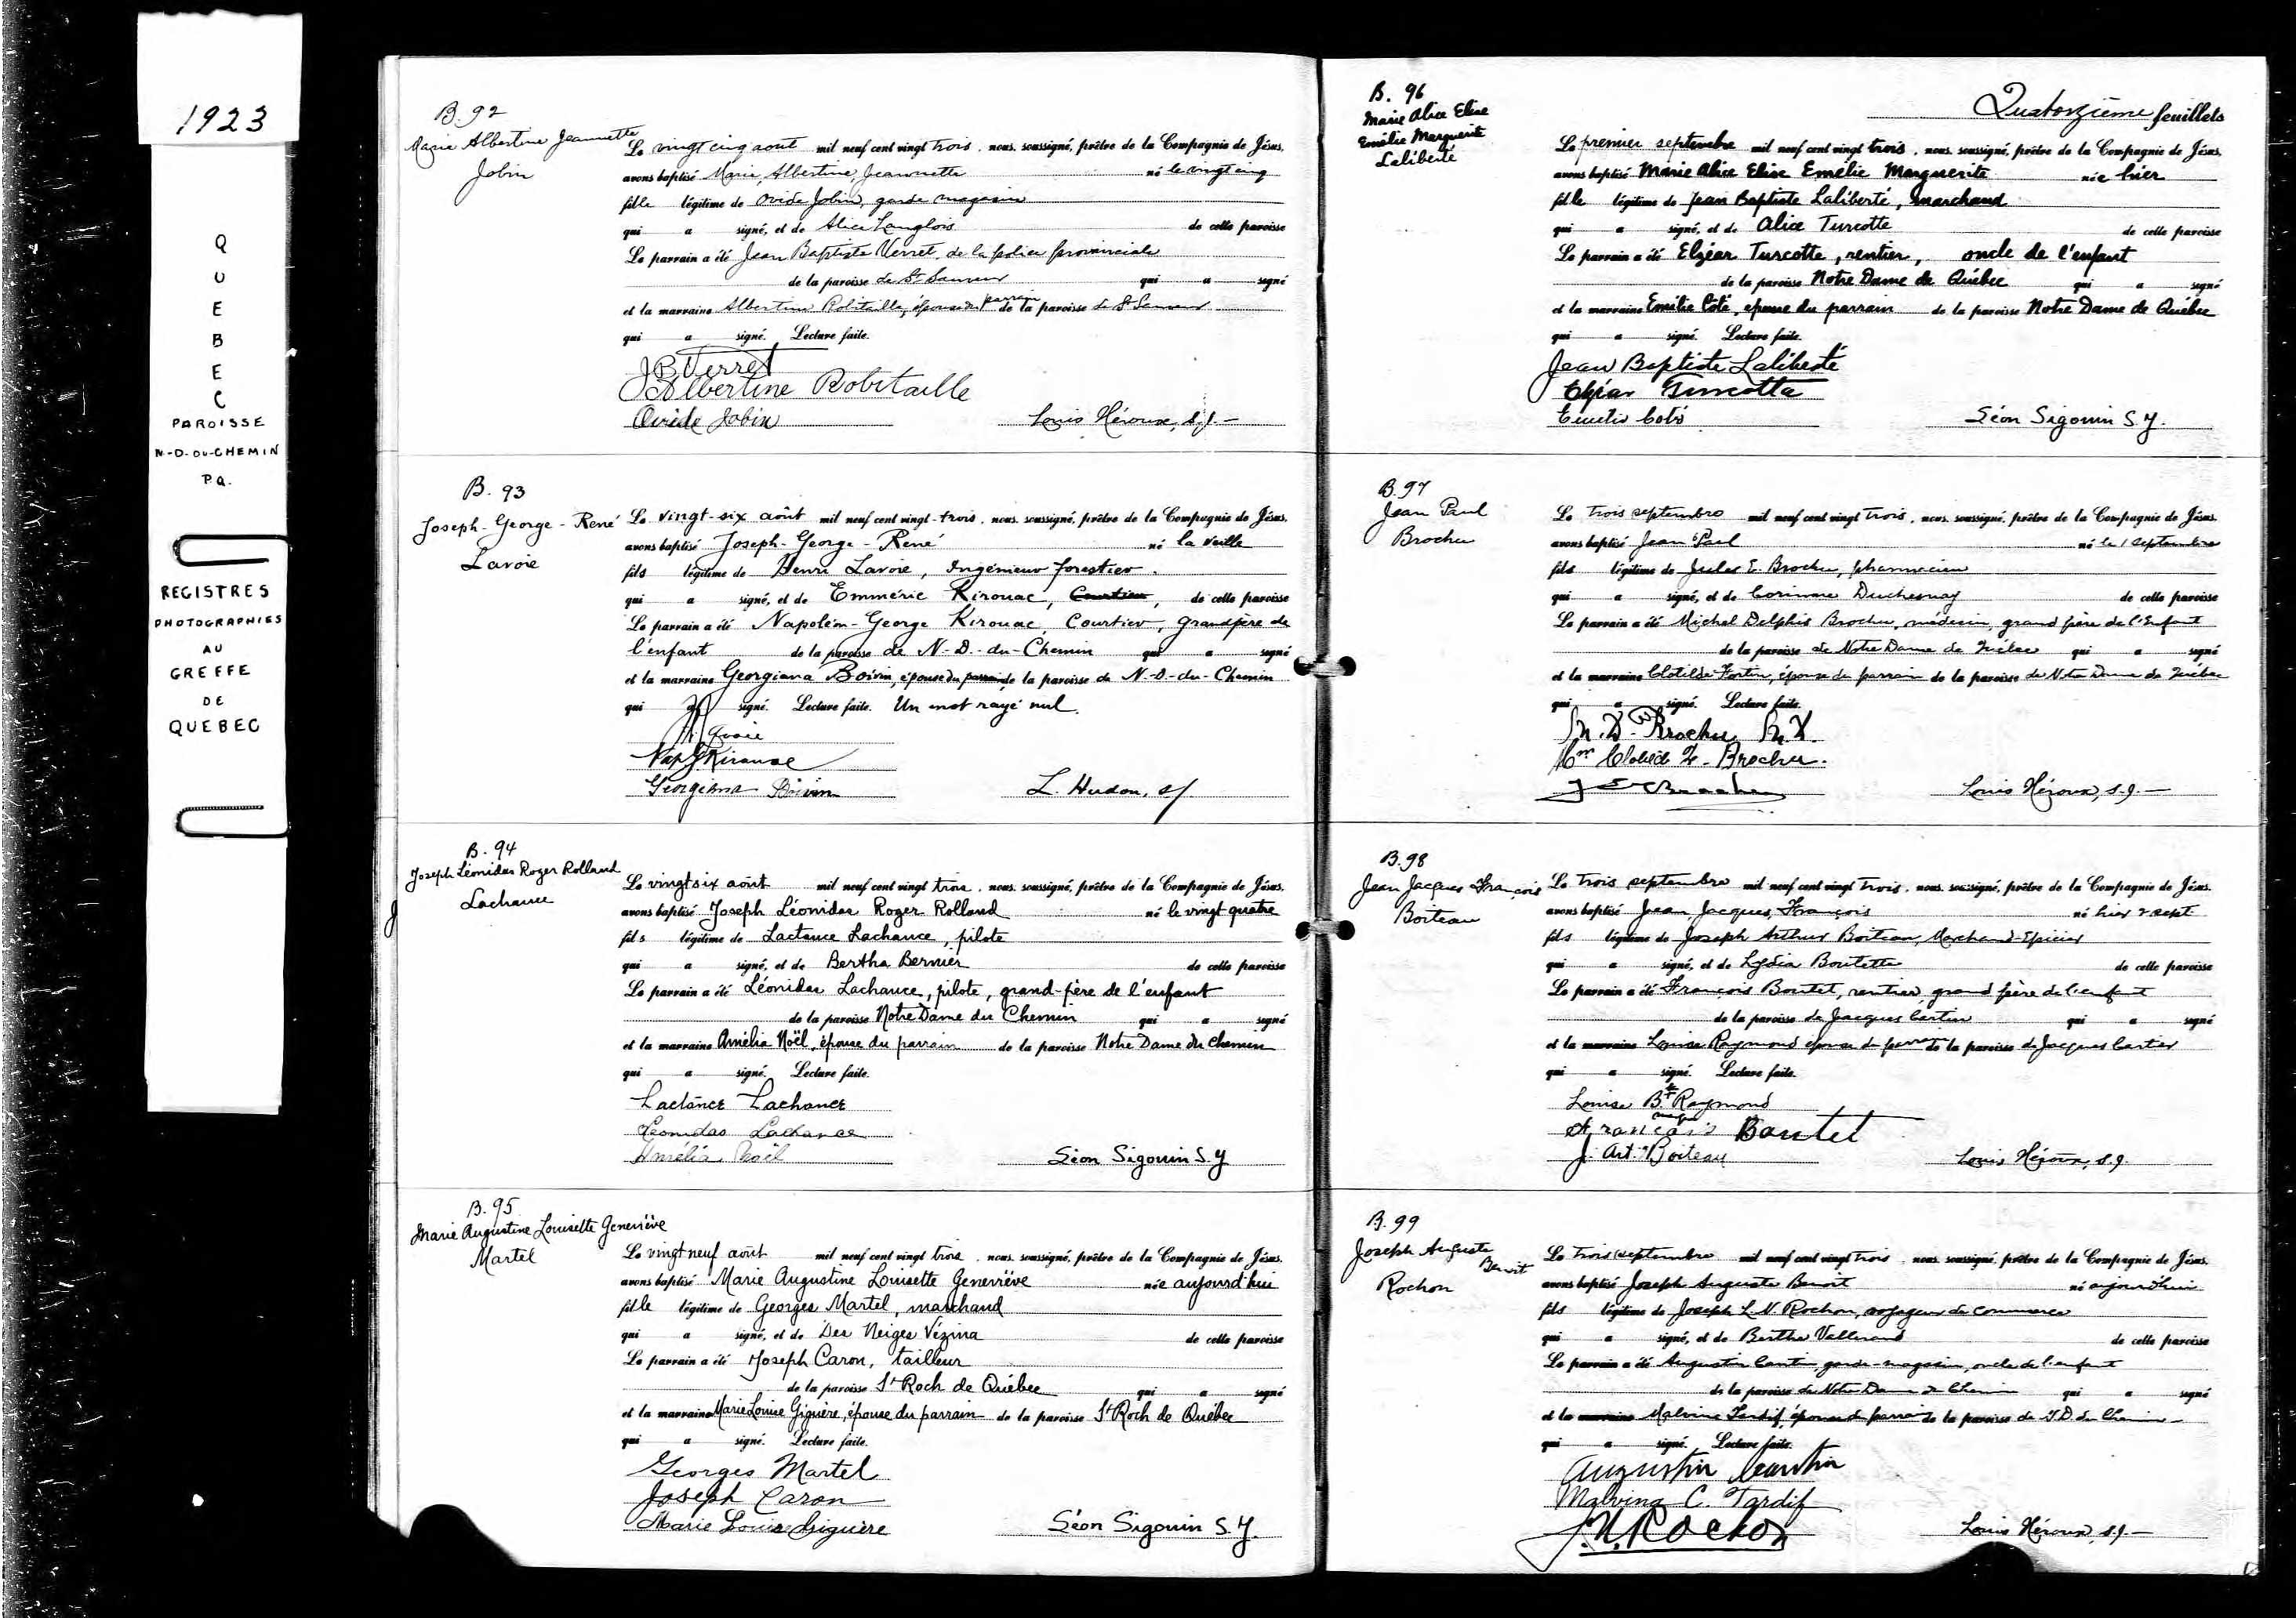 1923
QUEBEC
PAROISSE
N-D-DU-CHEMIN
P.Q.
REGISTRES
PHOTOGRAPHIES
AU
GREFFE
DE
QUEBEC
B. 92
Marie Albertine Jeannette
Jobin
Le vingt cinq aout mil neuf cent vingt trois, nous, soussigné, prêtre de la Compagnie de Jésus,
avons baptisé Marie, Albertine, Jeannette né le vingt cinq
fille légitime de Ovide Jobin, garde magasin
qui a signé, et de Alice Langlois de cette paroisse
Le parrain a été Jean Baptiste Verret, de la police provinciale
de la paroisse de St Sauveur qui a signé
et la marraine Albertine Robitaille, épouse du parrain de la paroisse de St Sauveur
qui a signé. Lecture faite.
J B Verret
Albertine Robitaille
Ovide Jobin Louis Héroux, s.j.-
B. 93
Joseph-George-René
Lavoie
Le vingt-six août mil neuf cent vingt-trois, nous, soussigné, prêtre de la Compagnie de Jésus,
avons baptisé Joseph-George-René né la veille
fils légitime de Henri Lavoie, Ingénieur forestier.
qui a signé, et de Emmérie Kirouac, Courtier, de cette paroisse
Le parrain a été Napoléon-George Kirouac, Courtier, grandpère de
l'enfant de la paroisse de N-D.-du-Chemin qui a signé
et la marraine Georgiana Boivin, épouse du parrain de la paroisse de N-D-du-Chemin
qui a signé. Lecture faite. Un mot rayé nul.
H. Lavoie
Nap G Kirouac
Georgiana Boivin L. Hudon, sj
B. 94
Joseph Léonidas Roger Rolland
Lachance
Le vingt six août mil neuf cent vingt trois, nous, soussigné, prêtre de la Compagnie de Jésus,
avons baptisé Joseph Léonidas Roger Rolland né le vingt quatre
fils légitime de Lactance Lachance, pilote
qui a signé, et de Bertha Bernier de cette paroisse
Le parrain a été Léonidas Lachance, pilote, grand-père de l'enfant
de la paroisse Notre Dame du Chemin qui a signé
et la marraine Amélia Noël, épouse du parrain de la paroisse Notre Dame du Chemin
qui a signé. Lecture faite.
Lactance Lachance
Léonidas Lachance
Amélia Noël Léon Sigouin S.J
B. 95
Marie Augustine Louisette Geneviève
Martel
Le vingt neuf août mil neuf cent vingt trois, nous, soussigné, prêtre de la Compagnie de Jésus,
avons baptisé Marie Augustine Louisette Geneviève née aujourd'hui
fille légitime de Georges Martel, marchand
qui a signé, et de Des Neiges Vézina de cette paroisse
Le parrain a été Joseph Caron, tailleur
de la paroisse St Roch de Québec qui a signé
et la marraine Marie Louise Giguère, épouse du parrain de la paroisse St Roch de Québec
qui a signé. Lecture faite.
Georges Martel
Joseph Caron
Marie Louise Giguère Léon Sigouin S.J.
Quatorzième feuillets
B. 96
Marie Alice Elise
Emélie Marguerite
Laliberté
Le premier septembre mil neuf cent vingt trois, nous, soussigné, prêtre de la Compagnie de Jésus,
avons baptisé Marie Alice Elise Emélie Marguerite née hier
fille légitime de Jean Baptiste Laliberté, marchand
qui a signé, et de Alice Turcotte de cette paroisse
Le parrain a été Elzéar Turcotte, rentier, oncle de l'enfant
de la paroisse Notre Dame de Québec qui a signé
et la marraine Emélie Côté, epouse du parrain de la paroisse Notre Dame de Québec
qui a signé. Lecture faite.
Jean Baptiste Laliberté
Elzéar Turcotte
Emelie Coté Léon Sigouin S.J.
B. 97
Jean Paul
Brochu
Le trois septembre mil neuf cent vingt trois, nous, soussigné, prêtre de la Compagnie de Jésus,
avons baptisé Jean Paul né le 1 septembre
fils légitime de Jules E. Brochu, pharmacien
qui a signé, et de Corinne Duchesnay de cette paroisse
Le parrain a été Michel Delphis Brochu, médecin, grand père de l'Enfant
de la paroisse de Notre Dame de Québec qui a signé
et la marraine Clotilde Fortin, épouse du parrain de la paroisse de Notre Dame de Québec
qui a signé. Lecture faite.
M. D. Brochu M.D.
Clotilde F. Brochu.
J E Brochu Louis Héroux, s.j.-
B. 98
Jean Jacques François
Boiteau
Le trois septembre mil neuf cent vingt trois, nous, soussigné, prêtre de la Compagnie de Jésus,
avons baptisé Jean Jacques, François né hier 2 sept.
fils légitime de Joseph Arthur Boiteau, Marchand-Epicier
qui a signé, et de Lydia Boutette de cette paroisse
Le parrain a été François Boutet, rentier, grand père de l'enfant
de la paroisse de Jacques Cartier qui a signé
et la marraine Louise Raymond epouse du parrain de la paroisse de Jacques Cartier
qui a signé. Lecture faite.
Louise Bt Raymond
François Boutet
J. Art. Boiteau Louis Héroux, s.j.
B. 99
Joseph Auguste
Benoit
Rochon
Le trois septembre mil neuf cent vingt trois, nous, soussigné, prêtre de la Compagnie de Jésus,
avons baptisé Joseph Auguste Benoit né aujourdhui
fils légitime de Joseph L. N. Rochon, voyageur de commerce
qui a signé, et de Berthe Vallerand de cette paroisse
Le parrain a été Augustin Cantin, garde-magasin, oncle de l'enfant
de la paroisse de Notre Dame du Chemin qui a signé
et la marraine Malvina Tardif, épouse du parrain de la paroisse de N.D. du Chemin-
qui a signé. Lecture faite.
Augustin Cantin
Malvina C. Tardif
J.N. Rochon Louis Héroux, s.j.-